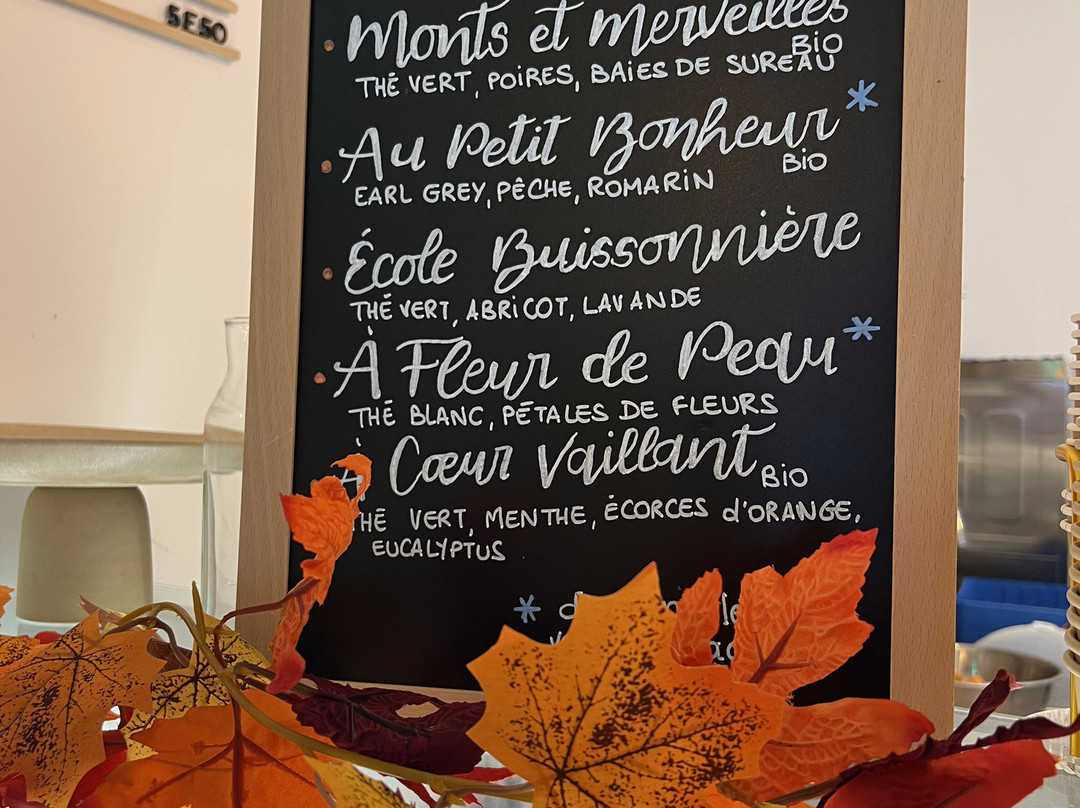 5E50
Monts et merveilles
BiO
THÉ VERT, POIRES, BAIES DE SUREAU
Au Petit Bonheur *
BiO
EARL GREY, PÊCHE, ROMARIN
École Buissonnière
THÉ VERT, ABRICOT, LAVANDE
À Fleur de Peau *
THÉ BLANC, PÉTALES DE FLEURS
À Cœur Vaillant
BiO
THÉ VERT, MENTHE, ÉCORCES d'ORANGE,
EUCALYPTUS
*